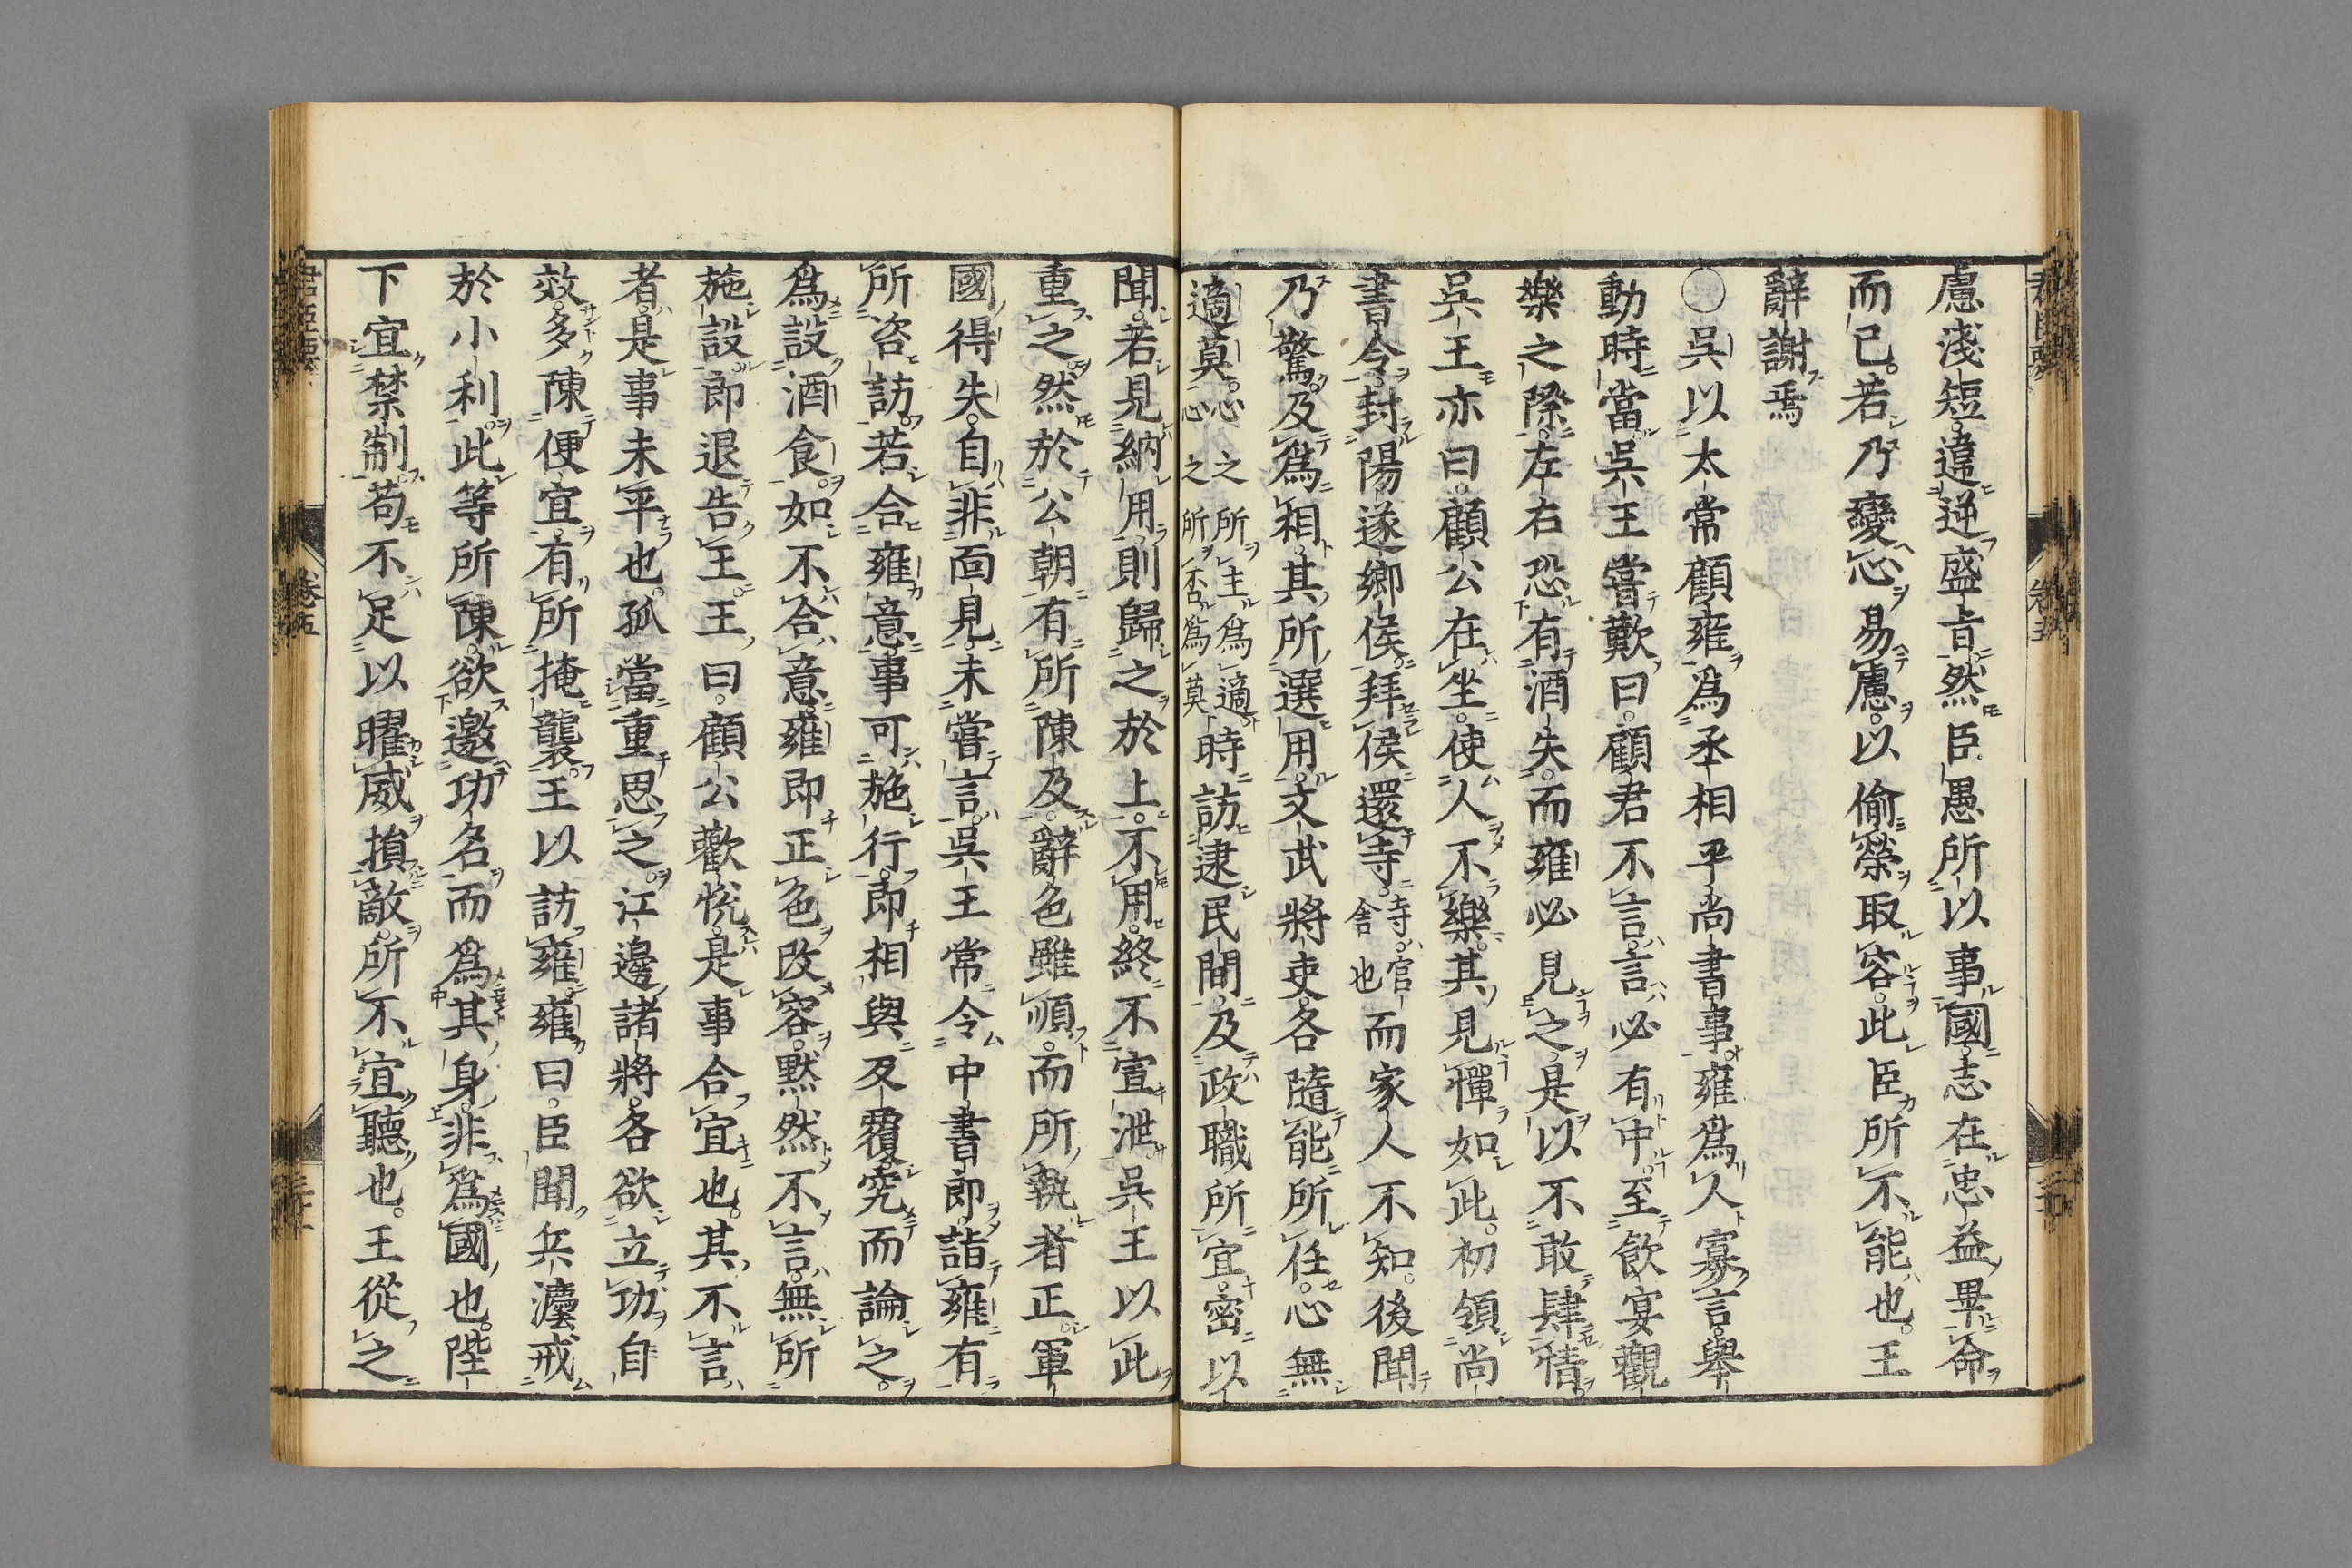 慮淺短違逆盛旨然臣愚所以事國志在忠益畢命
而已若乃變心易慮以偷榮取容此臣所不能也王
辭謝焉
○吳以太常顧雍爲丞相平尚書事雍爲人寡言舉
動時當吳王嘗歎曰顧君不言言必有中至飮宴觀
樂之際左右恐有酒失而雍必見之是以不敢肆情
吳王亦曰顧公在坐使人不樂其見憚如此初領尚
書令封陽遂鄉侯拜侯還寺寺官舍也而家人不知後聞
乃驚及爲相其所選用文武將吏各隨能所任心無
適莫心之所主爲適心之所否爲莫時訪逮民間及政職所宜密以
聞若見納用則歸之於上不用終不宣泄吳王以此
重之然於公朝有所陳及辭色雖順而所執者正軍
國得失自非面見未嘗言吳王常令中書郎詣雍有
所咨訪若合雍意事可施行即相與反覆究而論之
爲設酒食如不合意雍即正色改容默然不言無所
施設郎退告王王曰顧公歡悅是事合宜也其不言
者是事未平也孤當重思之江邊諸將各欲立功自
效多陳便宜有所掩襲王以訪雍雍曰臣聞兵灋戒
於小利此等所陳欲邀功名而爲其身非爲國也陛
下宜禁制苟不足以曜威損敵所不宜聽也王從之
卷五